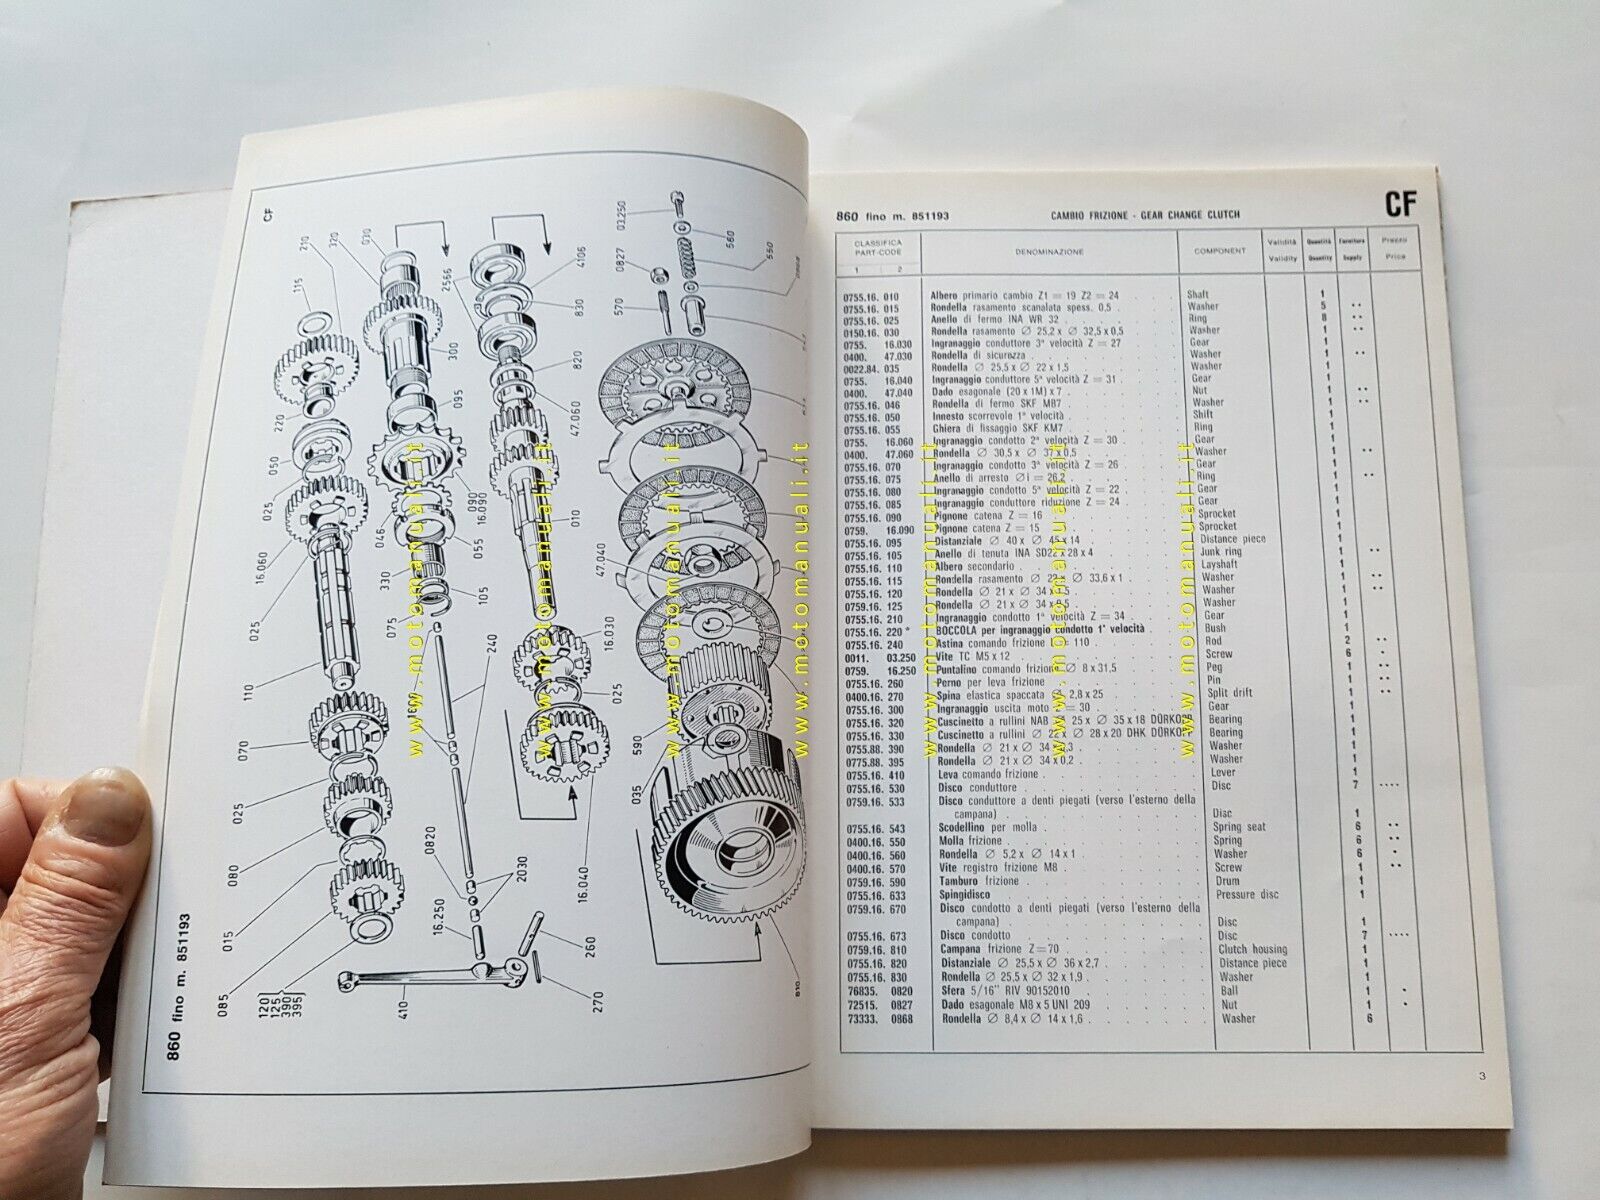 CF
860 fino m. 851193
115
210
320
030
220
050
025
16.060
025
110
070
025
080
015
085
120
125
390
395
2566
300
095
090
16.090
046
055
330
075
105
240
4106
830
820
47.060
010
16.030
025
16.040
0820
2030
16.250
260
270
410
03.250
560
550
0827
570
47.040
590
035
810
www.motomanuali.it
www.motomanuali.it
www.motomanuali.it
www.motomanuali.it
www.motomanuali.it
www.motomanuali.it
www.motomanuali.it
860 fino m. 851193 CAMBIO FRIZIONE - GEAR CHANGE CLUTCH CF
CLASSIFICA PART-CODE 1 2 DENOMINAZIONE COMPONENT Validità Validity Quantità Quantity Fornitura Supply Prezzo Price
0755.16. 010 Albero primario cambio Z1 = 19 Z2 = 24 Shaft 1
0755.16. 015 Rondella rasamento scanalata spess. 0,5 Washer 5
0755.16. 025 Anello di fermo INA WR 32 Ring 8
0150.16. 030 Rondella rasamento Ø 25,2 x Ø 32,5 x 0,5 Washer 1
0755. 16.030 Ingranaggio conduttore 3ª velocità Z = 27 Gear 1
0400. 47.030 Rondella di sicurezza Washer 1
0022.84. 035 Rondella Ø 25,5 x Ø 22 x 1,5 Washer 1
0755. 16.040 Ingranaggio conduttore 5ª velocità Z = 31 Gear 1
0400. 47.040 Dado esagonale (20 x 1M) x 7 Nut 1
0755.16. 046 Rondella di fermo SKF MB7 Washer 1
0755.16. 050 Innesto scorrevole 1ª velocità Shift 1
0755.16. 055 Ghiera di fissaggio SKF KM7 Ring 1
0755. 16.060 Ingranaggio condotto 2ª velocità Z = 30 Gear 1
0400. 47.060 Rondella Ø 30,5 x Ø 37 x 0,5 Washer 1
0755.16. 070 Ingranaggio condotto 3ª velocità Z = 26 Gear 1
0755.16. 075 Anello di arresto Ø i = 26,2 Ring 1
0755.16. 080 Ingranaggio condotto 5ª velocità Z = 22 Gear 1
0755.16. 085 Ingranaggio conduttore riduzione Z = 24 Gear 1
0755.16. 090 Pignone catena Z = 16 Sprocket 1
0759. 16.090 Pignone catena Z = 15 Sprocket 1
0755.16. 095 Distanziale Ø 40 x Ø 45 x 14 Distance piece 1
0755.16. 105 Anello di tenuta INA SD22 x 28 x 4 Junk ring 1
0755.16. 110 Albero secondario Layshaft 1
0755.16. 115 Rondella rasamento Ø 23 x Ø 33,6 x 1 Washer 1
0755.16. 120 Rondella Ø 21 x Ø 34 x 0,5 Washer 1
0759.16. 125 Rondella Ø 21 x Ø 34 x 0,5 Washer 1
0755.16. 210 Ingranaggio condotto 1ª velocità Z = 34 Gear 1
0755.16. 220 * BOCCOLA per ingranaggio condotto 1ª velocità Bush 1
0755.16. 240 Astina comando frizione L = 110 Rod 2
0011. 03.250 Vite TC M5 x 12 Screw 6
0759. 16.250 Puntalino comando frizione Ø 8 x 31,5 Peg 1
0755.16. 260 Perno per leva frizione Pin 1
0400.16. 270 Spina elastica spaccata Ø 2,8 x 25 Split drift 1
0755.16. 300 Ingranaggio uscita moto Z = 30 Gear 1
0755.16. 320 Cuscinetto a rullini NAB Ø 25 x Ø 35 x 18 DÜRKOPP Bearing 1
0755.16. 330 Cuscinetto a rullini Ø 22 x Ø 28 x 20 DHK DÜRKOPP Bearing 1
0755.88. 390 Rondella Ø 21 x Ø 34 x 0,3 Washer 1
0775.88. 395 Rondella Ø 21 x Ø 34 x 0,2 Washer 1
0755.16. 410 Leva comando frizione Lever 1
0755.16. 530 Disco conduttore Disc 7
0759.16. 533 Disco conduttore a denti piegati (verso l'esterno della
campana) Disc 1
0755.16. 543 Scodellino per molla Spring seat 6
0400.16. 550 Molla frizione Spring 6
0400.16. 560 Rondella Ø 5,2 x Ø 14 x 1 Washer 6
0400.16. 570 Vite registro frizione M8 Screw 1
0759.16. 590 Tamburo frizione Drum 1
0755.16. 633 Spingidisco Pressure disc 1
0759.16. 670 Disco condotto a denti piegati (verso l'esterno della
campana) Disc 1
0755.16. 673 Disco condotto Disc 7
0759.16. 810 Campana frizione Z=70 Clutch housing 1
0755.16. 820 Distanziale Ø 25,5 x Ø 36 x 2,7 Distance piece 1
0755.16. 830 Rondella Ø 25,5 x Ø 32 x 1,9 Washer 1
76835. 0820 Sfera 5/16" RIV 90152010 Ball 1
72515. 0827 Dado esagonale M8 x 5 UNI 209 Nut 1
73333. 0868 Rondella Ø 8,4 x Ø 14 x 1,6 Washer 6
3